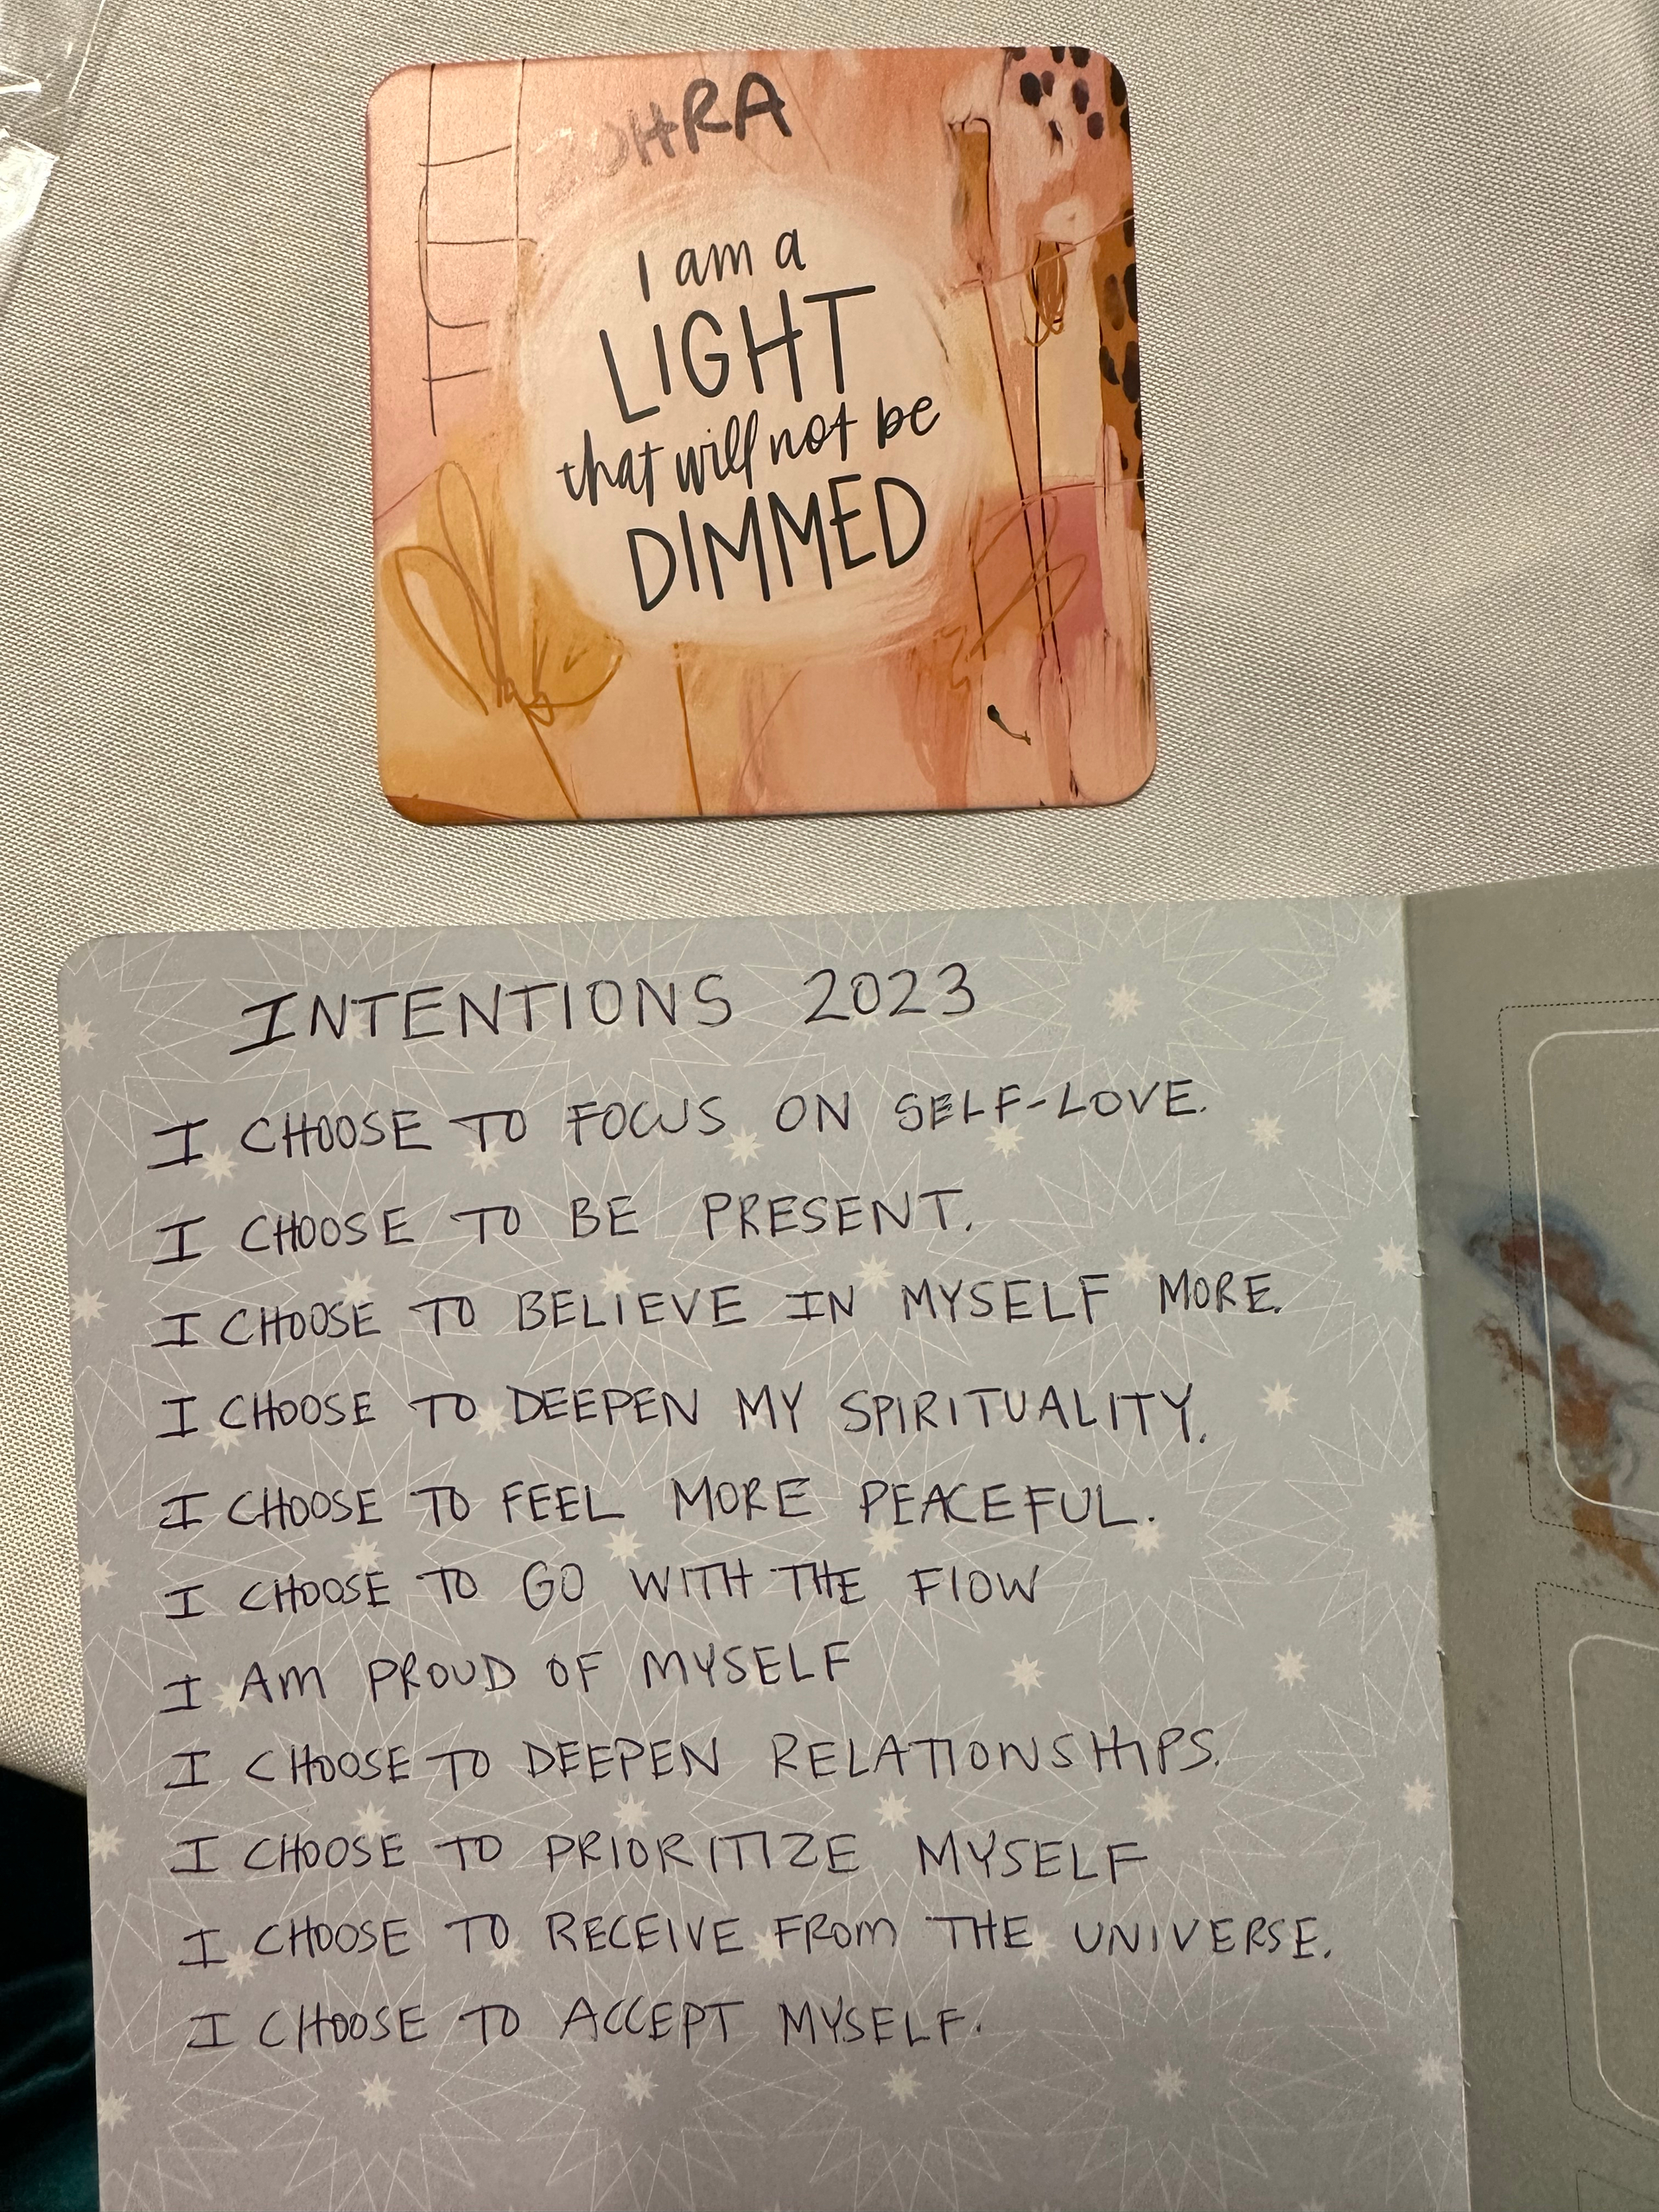 ZOHRA
I am a
LIGHT
that will not be
DIMMED
INTENTIONS 2023
I CHOOSE TO FOCUS ON SELF-LOVE.
I CHOOSE TO BE PRESENT.
I CHOOSE TO BELIEVE IN MYSELF MORE.
I CHOOSE TO DEEPEN MY SPIRITUALITY.
I CHOOSE TO FEEL MORE PEACEFUL.
I CHOOSE TO GO WITH THE FlOW
I AM PROUD OF MYSELF
I CHOOSE TO DEEPEN RELATIONSHIPS.
I CHOOSE TO PRIORITIZE MYSELF
I CHOOSE TO RECEIVE FROM THE UNIVERSE.
I CHOOSE TO ACCEPT MYSELF.